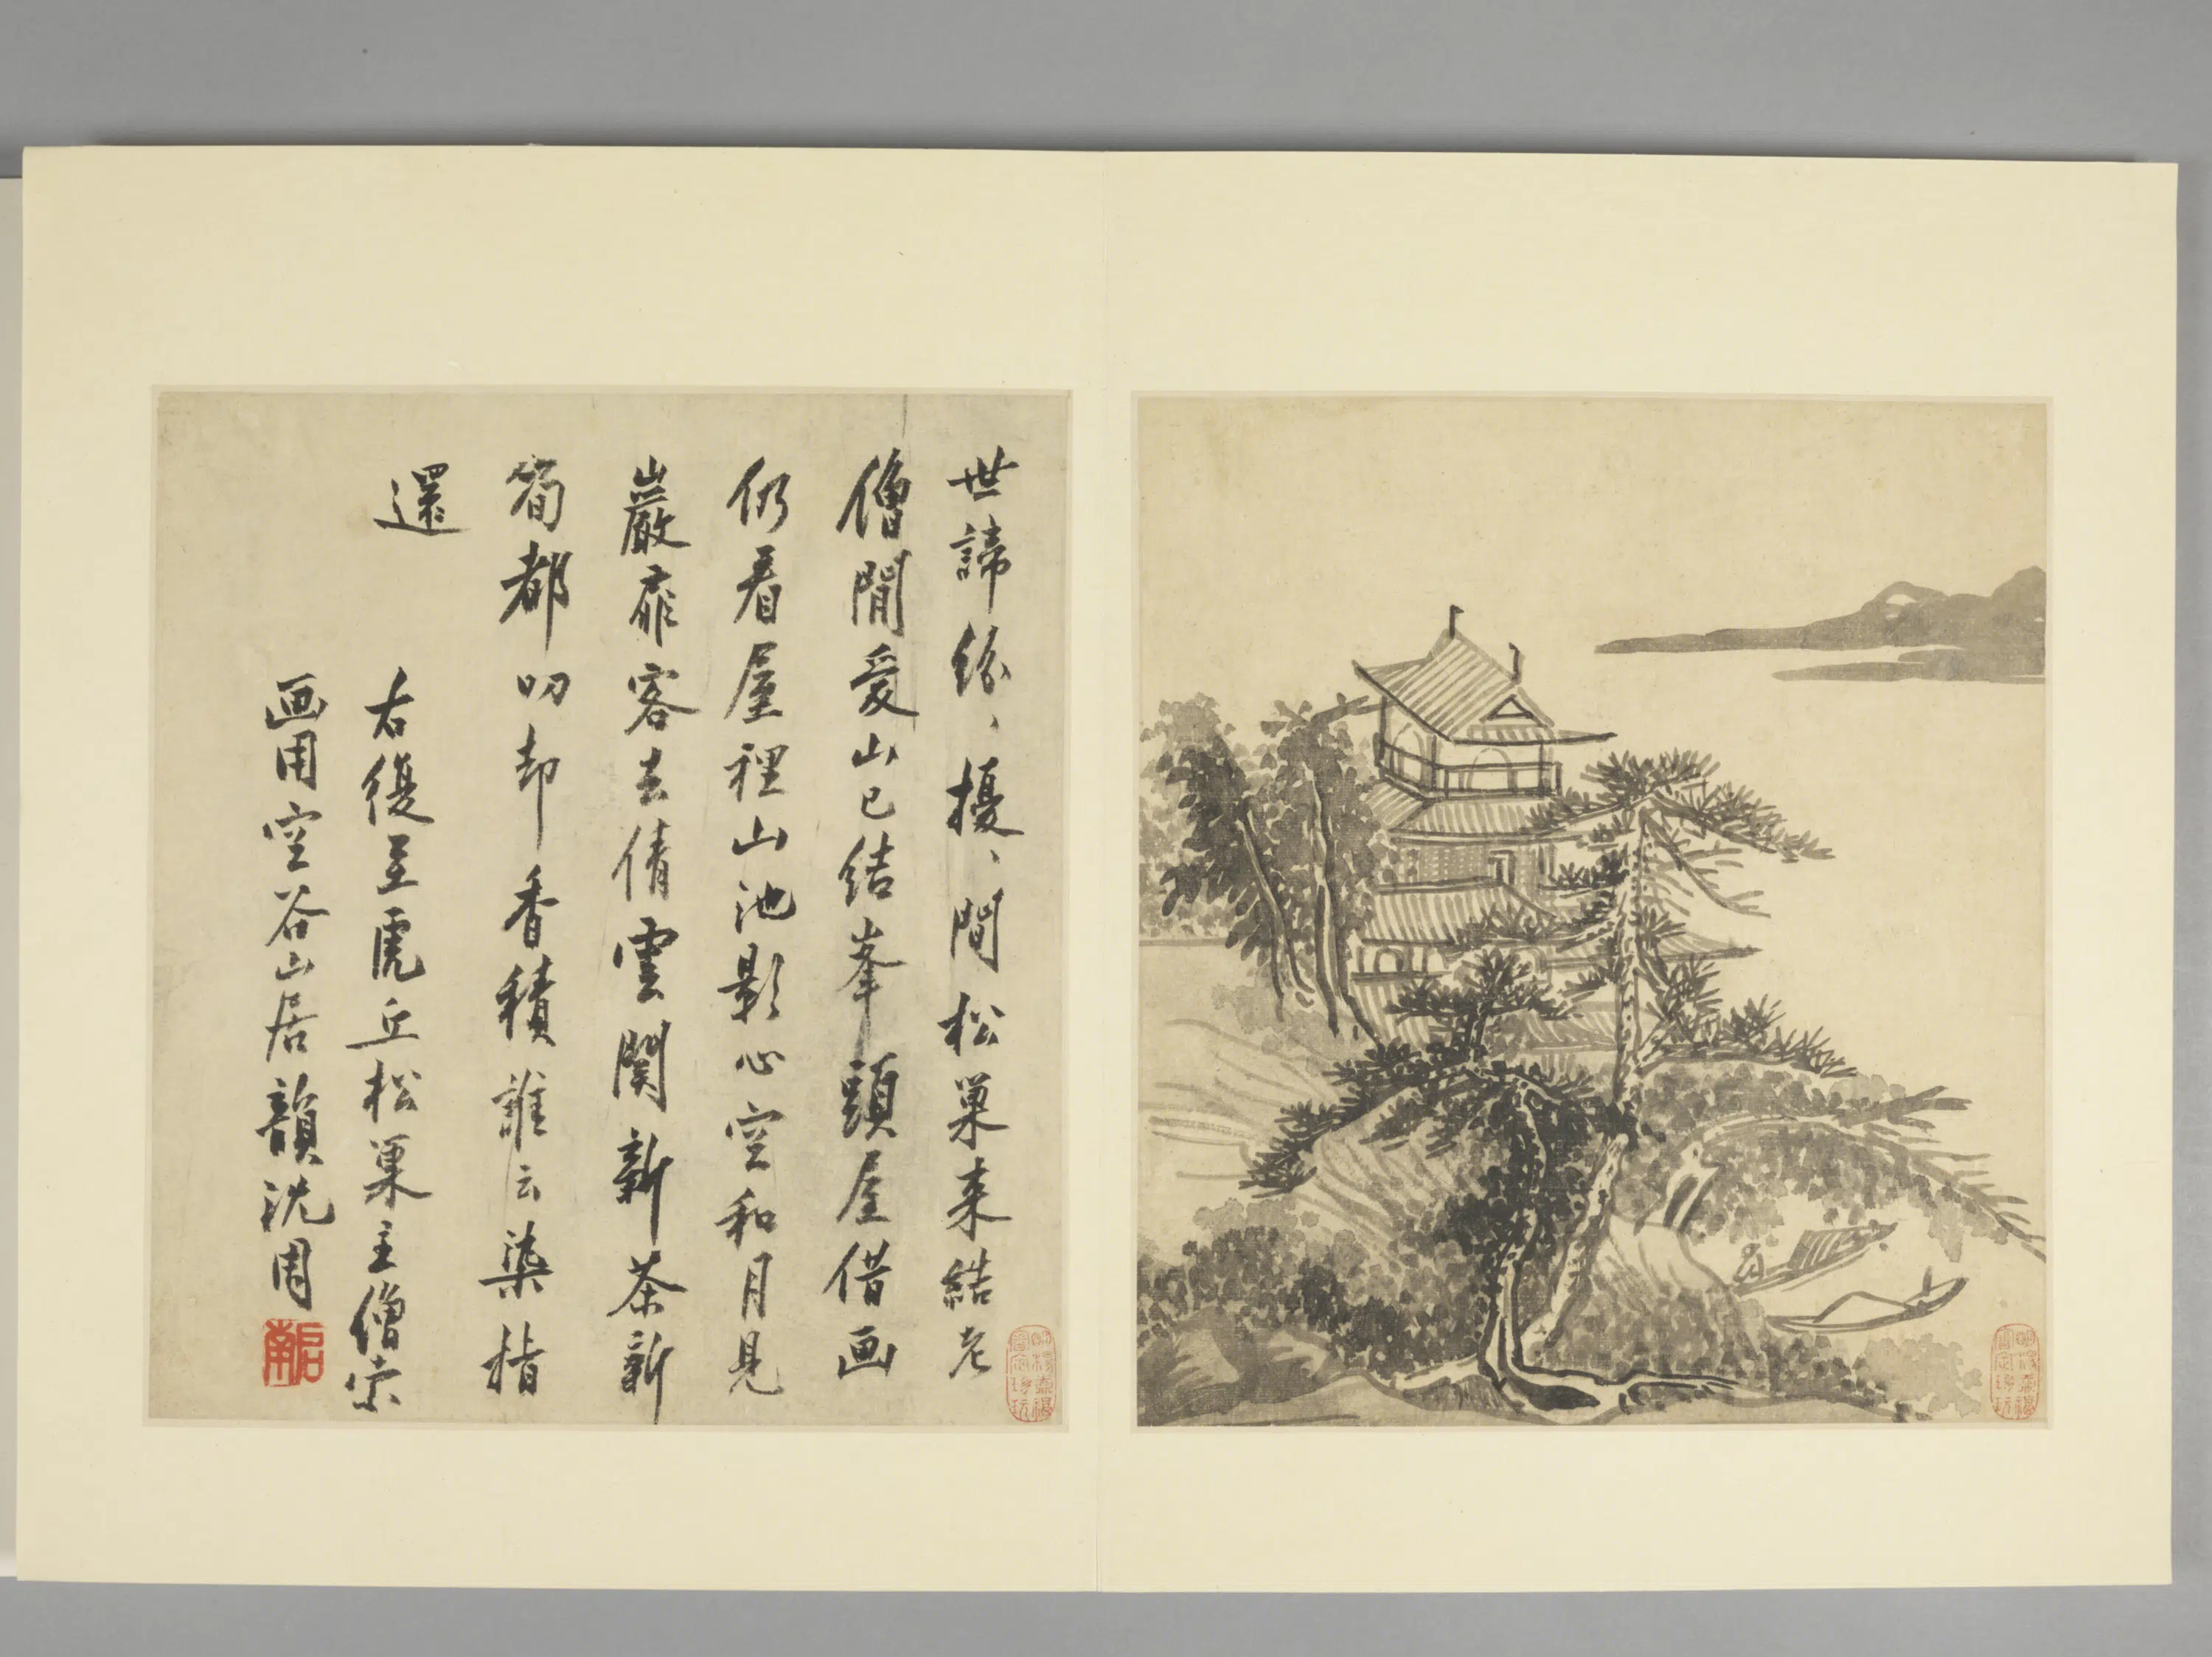 世諦紛、擾、間松巢来結老
僧閒爱山已结峯頭屋借画
仍看屋裡山池影心空和月見
巖扉客去倩雲関新茶新
筍都叨却香積誰云染指
還
右復至虎丘松巢主僧索
画用空谷山居韻沈周
啟南